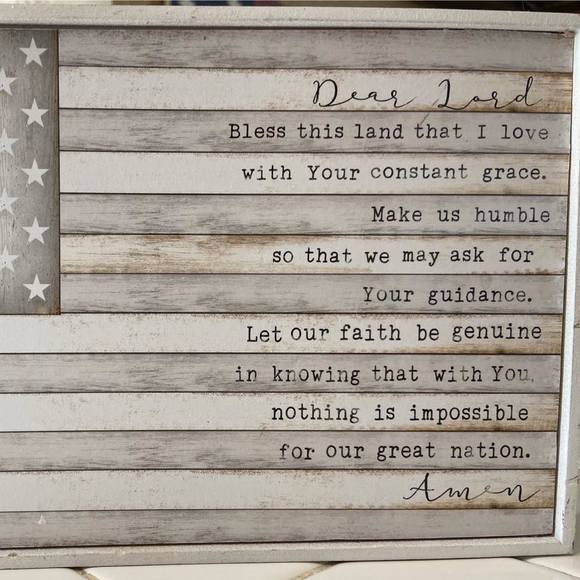 Dear Lord
Bless this land that I love
with Your constant grace.
Make us humble
so that we may ask for
Your guidance.
Let our faith be genuine
in knowing that with You,
nothing is impossible
for our great nation.
Amen